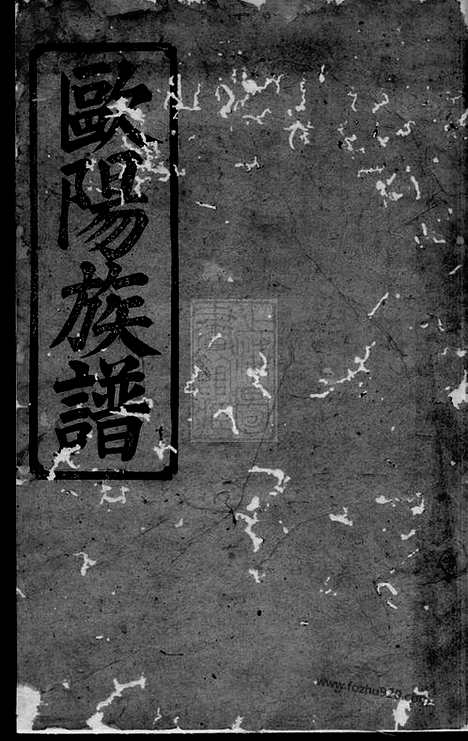 歐陽族譜
www.fozhu920.com